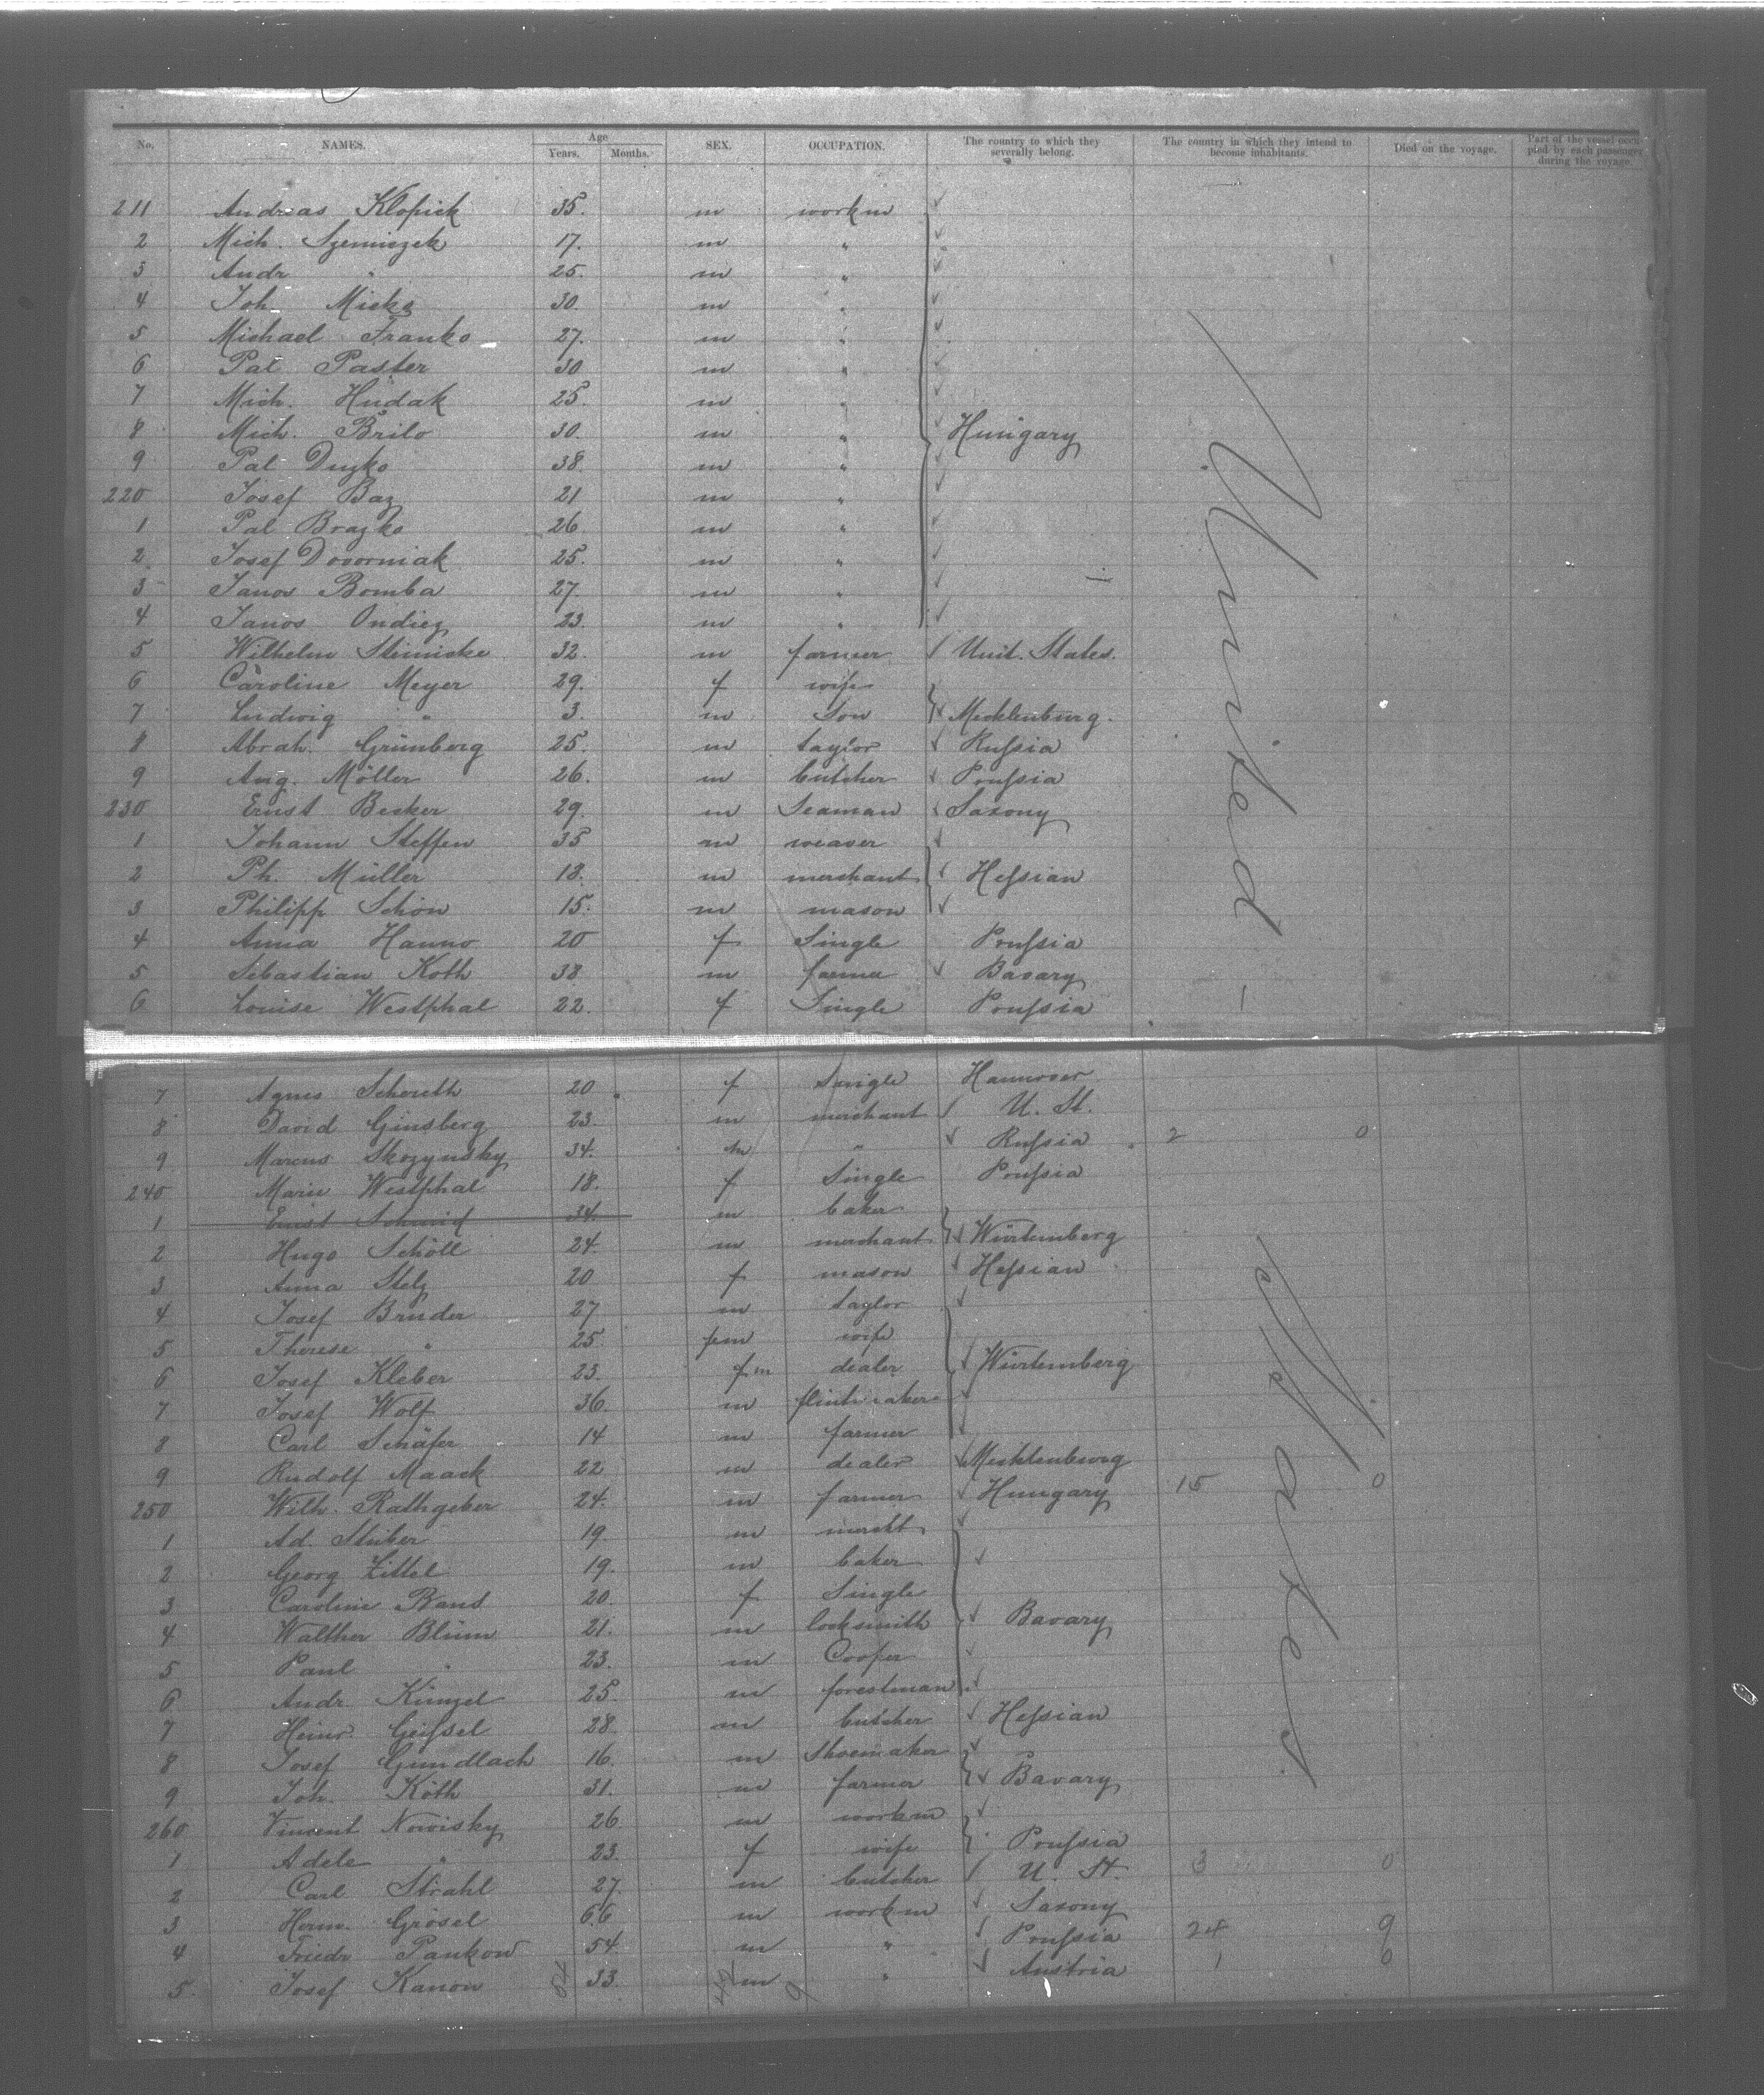 No. NAMES. Age Years. Months. SEX. OCCUPATION. The country to which they severally belong. The country in which they intend to become inhabitants. Died on the voyage. Part of the vessel occupied by each passenger during the voyage.
211 Andreas Klopick 35. m workm
2 Mich. Szemiczek 17. m "
3 Andr " 25. m "
4 Joh. Micko 30. m "
5 Michael Franko 27. m "
6 Pal Paster 30 m "
7 Mich. Hudak 25. m "
8 Mich. Brilo 30. m " Hungary
9 Pal Duzko 38. m "
220 Josef Baz 21 m "
1 Pal Brazko 26 m "
2 Josef Dovorniak 25. m "
3 Janos Bomba 27. m "
4 Janos Ondiez 23. m "
5 Wilhelm Steiniske 32. m farmer Unit. States.
6 Caroline Meyer 29. f wife
7 Ludwig " 3. m Son Mecklenburg.
8 Abrah. Grünberg 25. m taylor Russia
9 Aug. Möller 26. m butcher Prussia
230 Ernst Becker 29. m Seaman Saxony
1 Johann Steffen 35 m weaver
2 Ph. Müller 18. m merchant Hessian
3 Philipp Schön 15. m mason
4 Anna Hanno 20 f Single Prussia
5 Sebastian Koth 38 m farmer Bavary
6 Louise Westphal 22. f Single Prussia
United
7 Agnes Schoreth 20 f Single Hannover
8 David Ginsberg 23. m merchant U. St.
9 Marcus Skozynsky 34. m " Russia 2 0
240 Marie Westphal 18. f Single Prussia
1 Ernst Schmid 34. m baker
2 Hugo Schöll 24. m merchant Würtemberg
3 Anna Stelz 20 f mason Hessian
4 Josef Bruder 27 m taylor
5 Therese " 25. fem wife
6 Josef Kleber 23. fm dealer Würtemberg
7 Josef Wolf 36. m
8 Carl Schäfer 14 m farmer
9 Rudolf Maack 22 m dealer Mecklenburg
250 Wilh. Rathgeber 24. m farmer Hungary 15 0
1 Ad. Stuber 19. m mercht
2 Georg Zittel 19. m baker
3 Caroline Rand 20. f Single
4 Walther Blum 21. m locksmith Bavary
5 Paul " 23. m Cooper
6 Andr. Künzel 25. m forestman
7 Heinr. Geissel 28. m butcher Hessian
8 Josef Gundlach 16. m Shoemaker
9 Joh. Köth 31. m farmer Bavary
260 Vincent Nowisky 26. m workm
1 Adele " 23. f wife Prussia
2 Carl Strahl 27. m butcher U. St. 3 0
3 Herm. Grösel 66 m workm Saxony
4 Friedr Pankow 54. m " Prussia 24 9
5. Josef Kanon 33. m " Austria 1 0
States